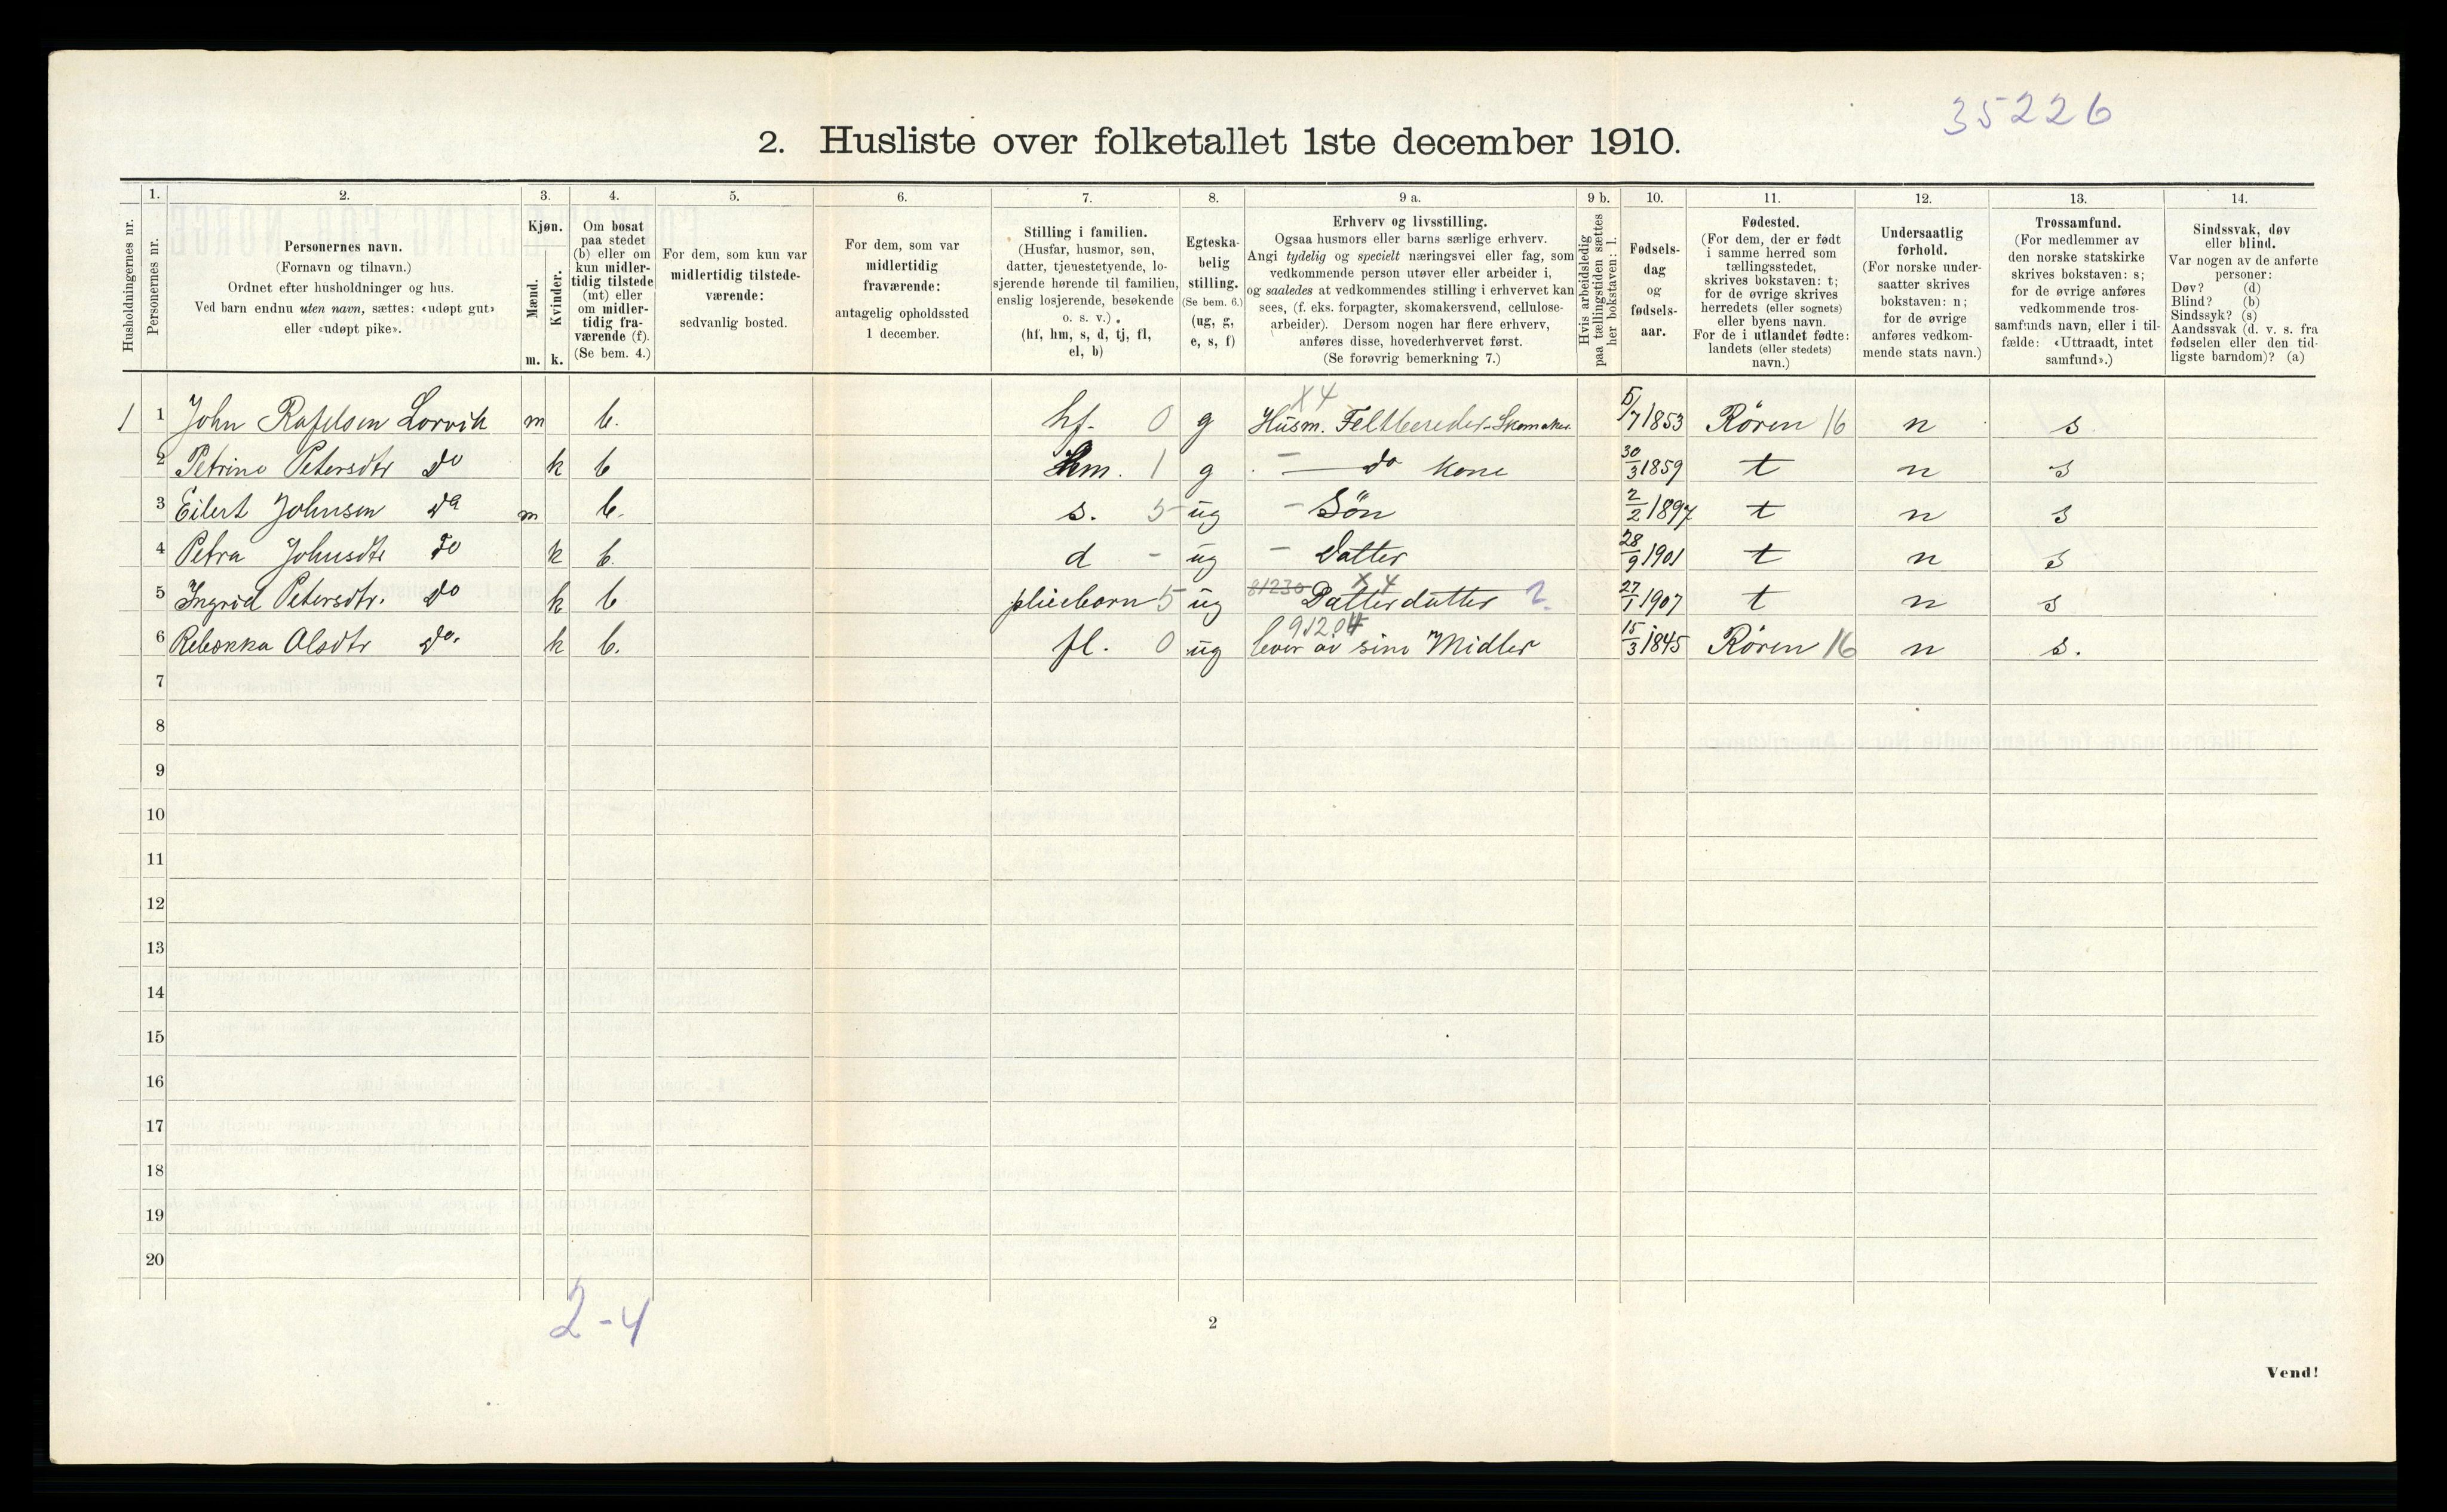 35226
2. Husliste over folketallet 1ste december 1910.
Husholdningernes nr.
1.
Personernes nr.
2.
Personernes navn.
(Fornavn og tilnavn.)
Ordnet efter husholdninger og hus.
Ved barn endnu uten navn, sættes: «udøpt gut»
eller «udøpt pike».
3.
Kjøn.
Mænd.
Kvinder.
m. k.
4.
Om bosat
paa stedet
(b) eller om
kun midler-
tidig tilstede
(mt) eller
om midler-
tidig fra-
værende (f).
(Se bem. 4.)
5.
For dem, som kun var
midlertidig tilstede-
værende:
sedvanlig bosted.
6.
For dem, som var
midlertidig
fraværende:
antagelig opholdssted
1 december.
7.
Stilling i familien.
(Husfar, husmor, søn,
datter, tjenestetyende, lo-
sjerende hørende til familien,
enslig losjerende, besøkende
o. s. v.).
(hf, hm, s, d, tj, fl,
el, b)
8.
Egteska-
belig
stilling.
(Se bem. 6.)
(ug, g,
e, s, f)
9 a.
Erhverv og livsstilling.
Ogsaa husmors eller barns særlige erhverv.
Angi tydelig og specielt næringsvei eller fag, som
vedkommende person utøver eller arbeider i,
og saaledes at vedkommendes stilling i erhvervet kan
sees, (f. eks. forpagter, skomakersvend, cellulose-
arbeider). Dersom nogen har flere erhverv,
anføres disse, hovederhvervet først.
(Se forøvrig bemerkning 7.)
9 b.
Hvis arbeidsledig
paa tællingstiden sættes
her bokstaven: l.
10.
Fødsels-
dag
og
fødsels-
aar.
11.
Fødested.
(For dem, der er født
i samme herred som
tællingsstedet,
skrives bokstaven: t;
for de øvrige skrives
herredets (eller sognets)
eller byens navn.
For de i utlandet fødte:
landets (eller stedets)
navn.)
12.
Undersaatlig
forhold.
(For norske under-
saatter skrives
bokstaven: n;
for de øvrige
anføres vedkom-
mende stats navn.)
13.
Trossamfund.
(For medlemmer av
den norske statskirke
skrives bokstaven: s;
for de øvrige anføres
vedkommende tros-
samfunds navn, eller i til-
fælde: «Uttraadt, intet
samfund».)
14.
Sindssvak, døv
eller blind.
Var nogen av de anførte
personer:
Døv? (d)
Blind? (b)
Sindssyk? (s)
Aandssvak (d. v. s. fra
fødselen eller den tid-
ligste barndom)? (a)
X4
1 1 John Rafelsen Lorvik m b. hf. 0 g Husm. Feltbereder-Skomaker 5/7 1853 Rören 16 n s
2 Petrine Petersdtr do k b hm. 1 g - do kone 30/3 1859 t n s
3 Eilert Johnsen do m b. s. 5 ug - Sön 2/2 1897 t n s
4 Petra Johnsdtr do k b. d - ug - Datter 28/9 1901 t n s
X 4
5 Ingrid Petersdtr. do k b pliebarn 5 ug 81230 Datterdatter 2. 27/1 1907 t n s
91204
6 Rebekka Olsdtr do. k b. fl. 0 ug lever av sine Midler 15/3 1845 Rören 16 n s.
7
8
9
10
11
12
13
14
15
16
17
18
19
20
2-4
2
Vend!